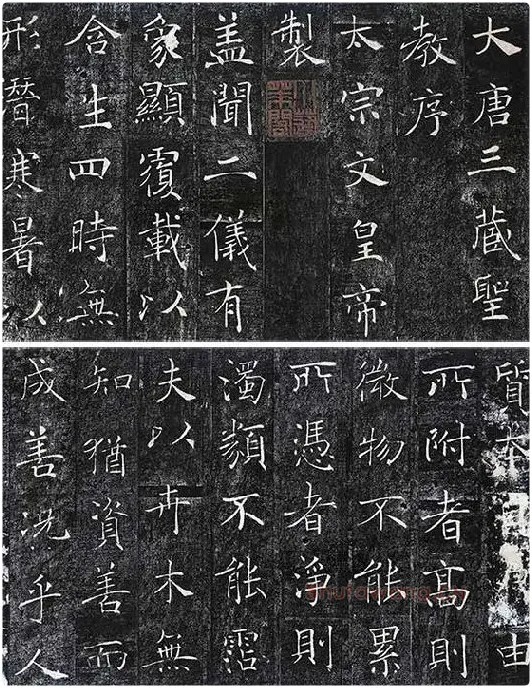 大唐三藏聖
教序
太宗文皇帝
製
盖聞二儀有
象顯覆載以
含生四時無
形潛寒暑以
質本由
所附者高則
微物不能累
所憑者淨則
濁類不能霑
夫以卉木無
知猶資善而
成善況乎人